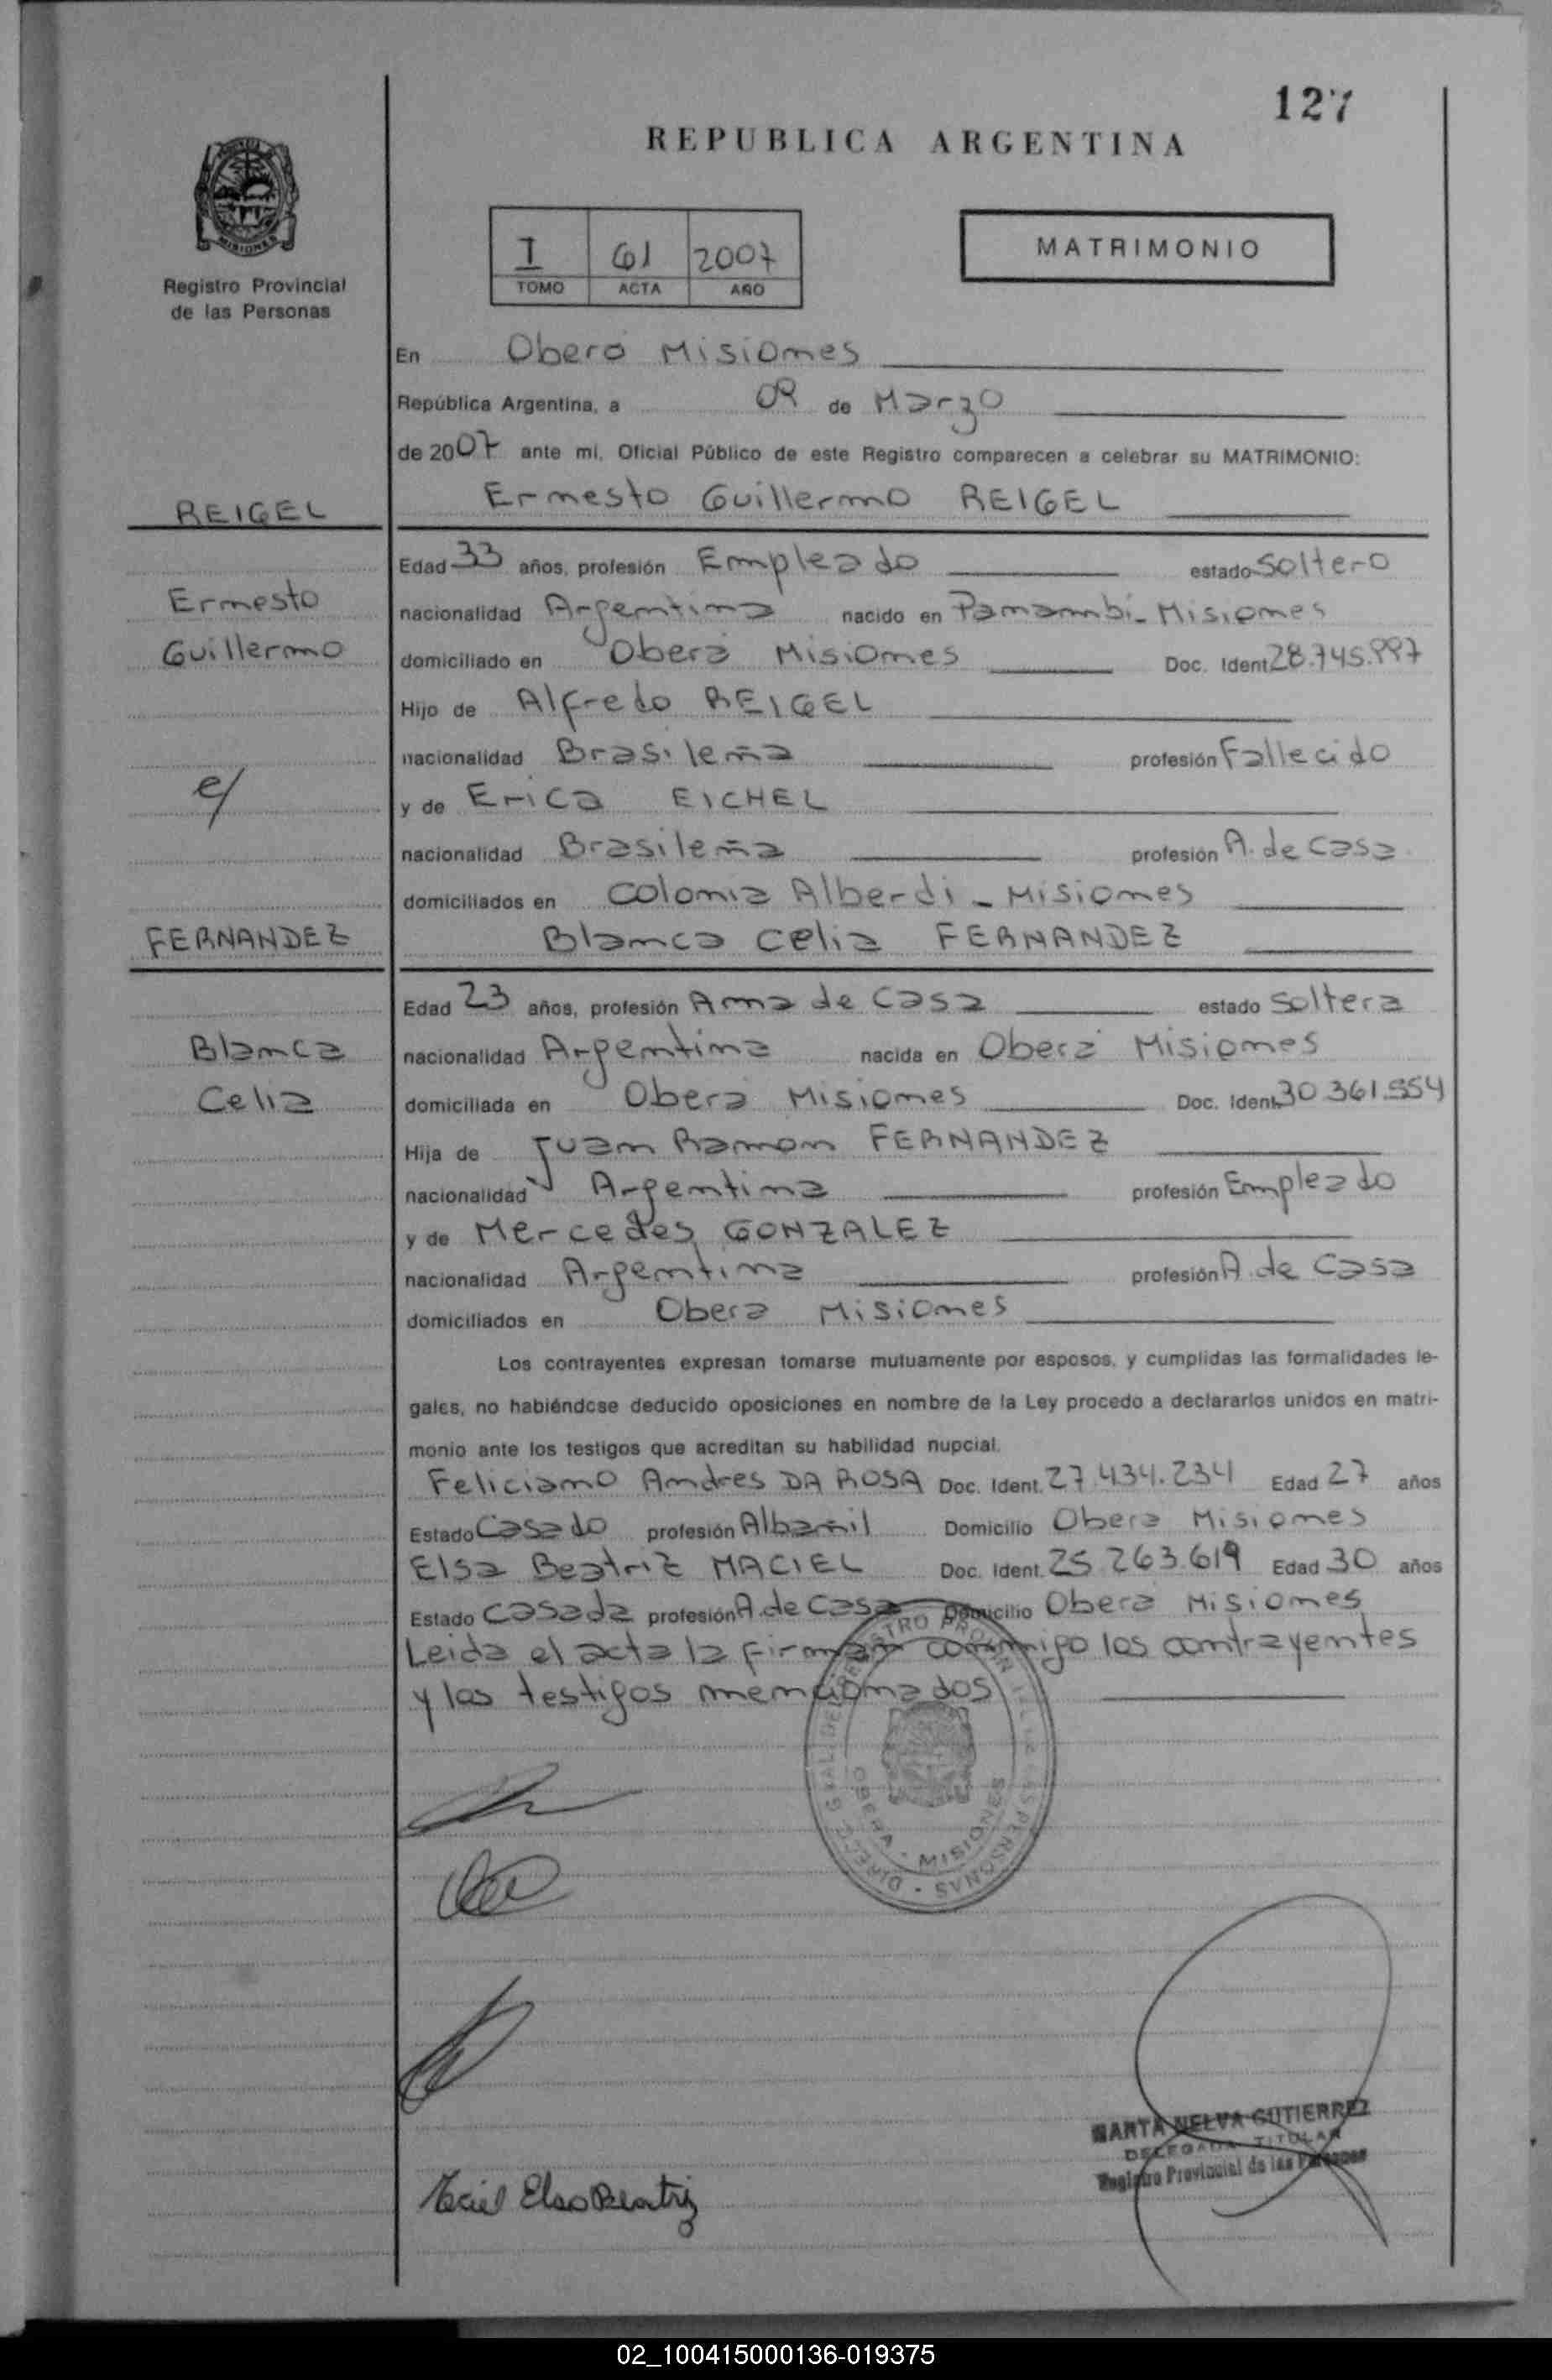 127
REPUBLICA ARGENTINA
MISIONES
Registro Provincial
de las Personas
I 61 2007
TOMO ACTA AÑO
MATRIMONIO
En Oberá Misiones
República Argentina, a 09 de Marzo
de 2007 ante mí, Oficial Público de este Registro comparecen a celebrar su MATRIMONIO:
REIGEL Ernesto Guillermo REIGEL
Edad 33 años, profesión Empleado estado Soltero
Ernesto nacionalidad Argentina nacido en Panambi - Misiones
Guillermo domiciliado en Oberá Misiones Doc. Ident 28.745.997
Hijo de Alfredo REIGEL
nacionalidad Brasileña profesión Fallecido
c/ y de Erica EICHEL
nacionalidad Brasileña profesión A. de Casa
domiciliados en Colonia Alberdi - Misiones
FERNANDEZ Blanca Celia FERNANDEZ
Edad 23 años, profesión Ama de Casa estado Soltera
Blanca nacionalidad Argentina nacida en Oberá Misiones
Celia domiciliada en Oberá Misiones Doc. Ident. 30.361.554
Hija de Juan Ramon FERNANDEZ
nacionalidad Argentina profesión Empleado
y de Mercedes GONZALEZ
nacionalidad Argentina profesión A. de Casa
domiciliados en Oberá Misiones
Los contrayentes expresan tomarse mutuamente por esposos, y cumplidas las formalidades le-
gales, no habiéndose deducido oposiciones en nombre de la Ley procedo a declararlos unidos en matri-
monio ante los testigos que acreditan su habilidad nupcial.
Feliciano Andres DA ROSA Doc. Ident. 27.434.234 Edad 27 años
Estado Casado profesión Albañil Domicilio Oberá Misiones
Elsa Beatriz MACIEL Doc. Ident. 25.263.619 Edad 30 años
Estado Casada profesión A. de Casa Domicilio Oberá Misiones
Leida el acta la firman conmigo los contrayentes
y los testigos mencionados
OBERA - MISIONES
MARTA NELVA GUTIERREZ
DELEGADA TITULAR
Registro Provincial de las Personas
Maciel Elsa Beatriz
02_100415000136-019375